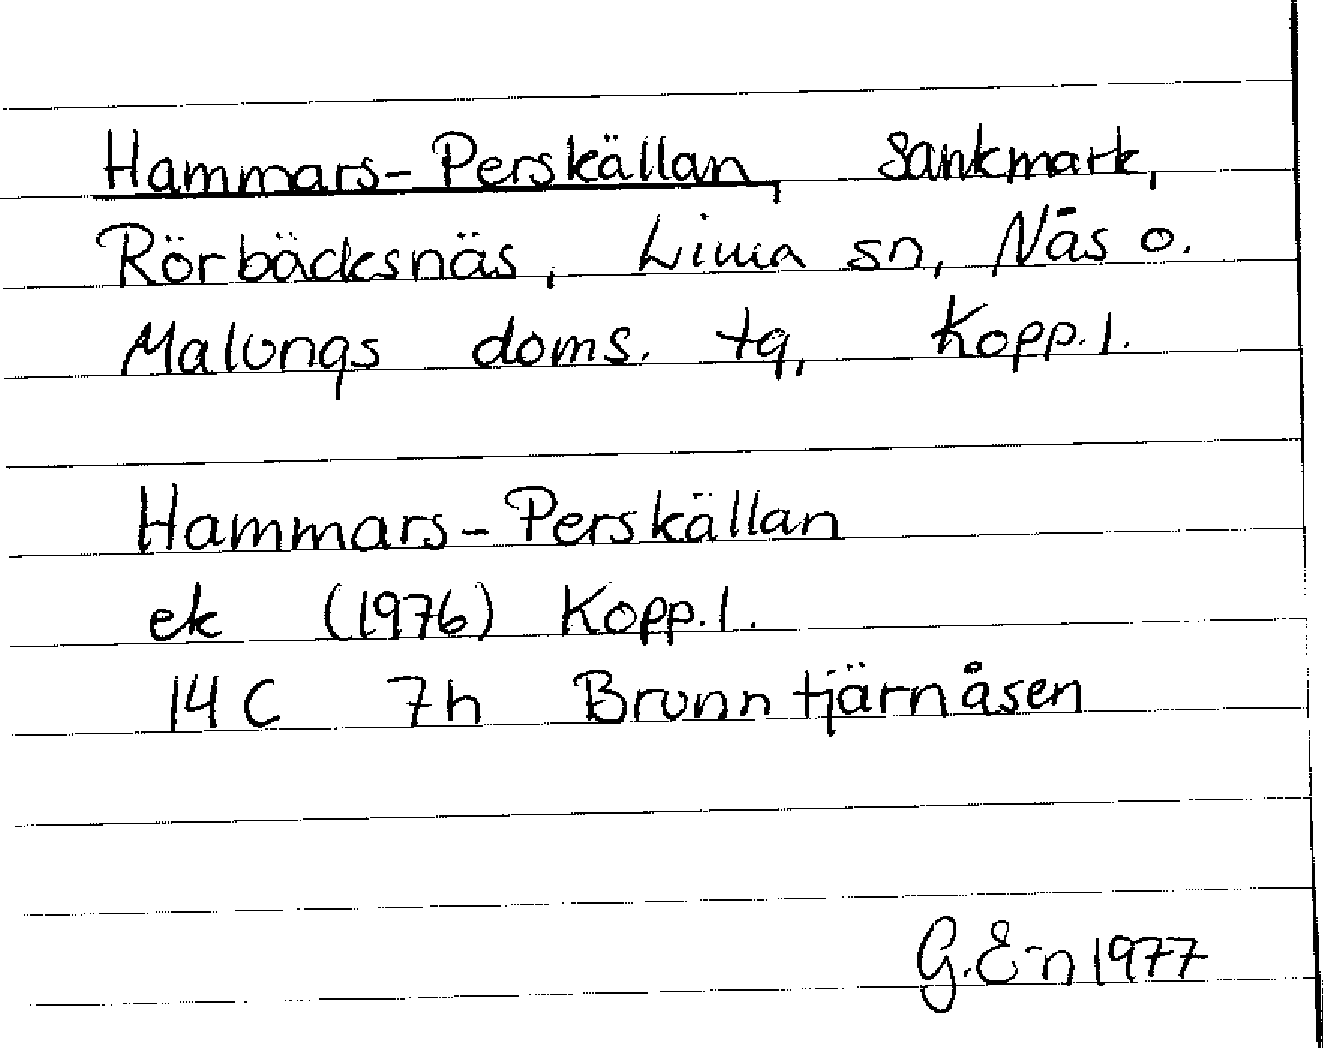 Hammars-Perskällan, Sankmark,
Rörbäcksnäs, Lima sn, Näs o.
Malungs doms. tg, Kopp.l.
Hammars-Perskällan
ek (1976) Kopp.l.
14 C 7h Brunntjärnåsen
G.E-n 1977